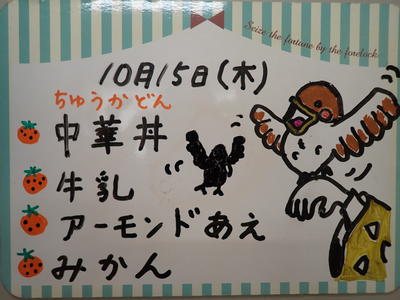 Seize the fortune by the forelock.
10月15日(木)
ちゅうかどん
中華丼
牛乳
アーモンドあえ
みかん